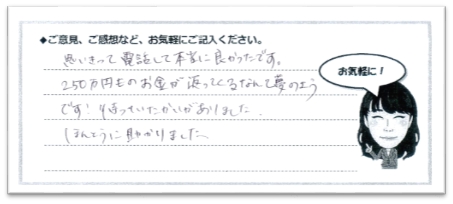 ◆ご意見、ご感想など、お気軽にご記入ください。
思いきって電話して本当に良かったです。
250万円ものお金が返ってくるなんて夢のよう
です！待っていたかいがありました.
ほんとうに助かりました
お気軽に！